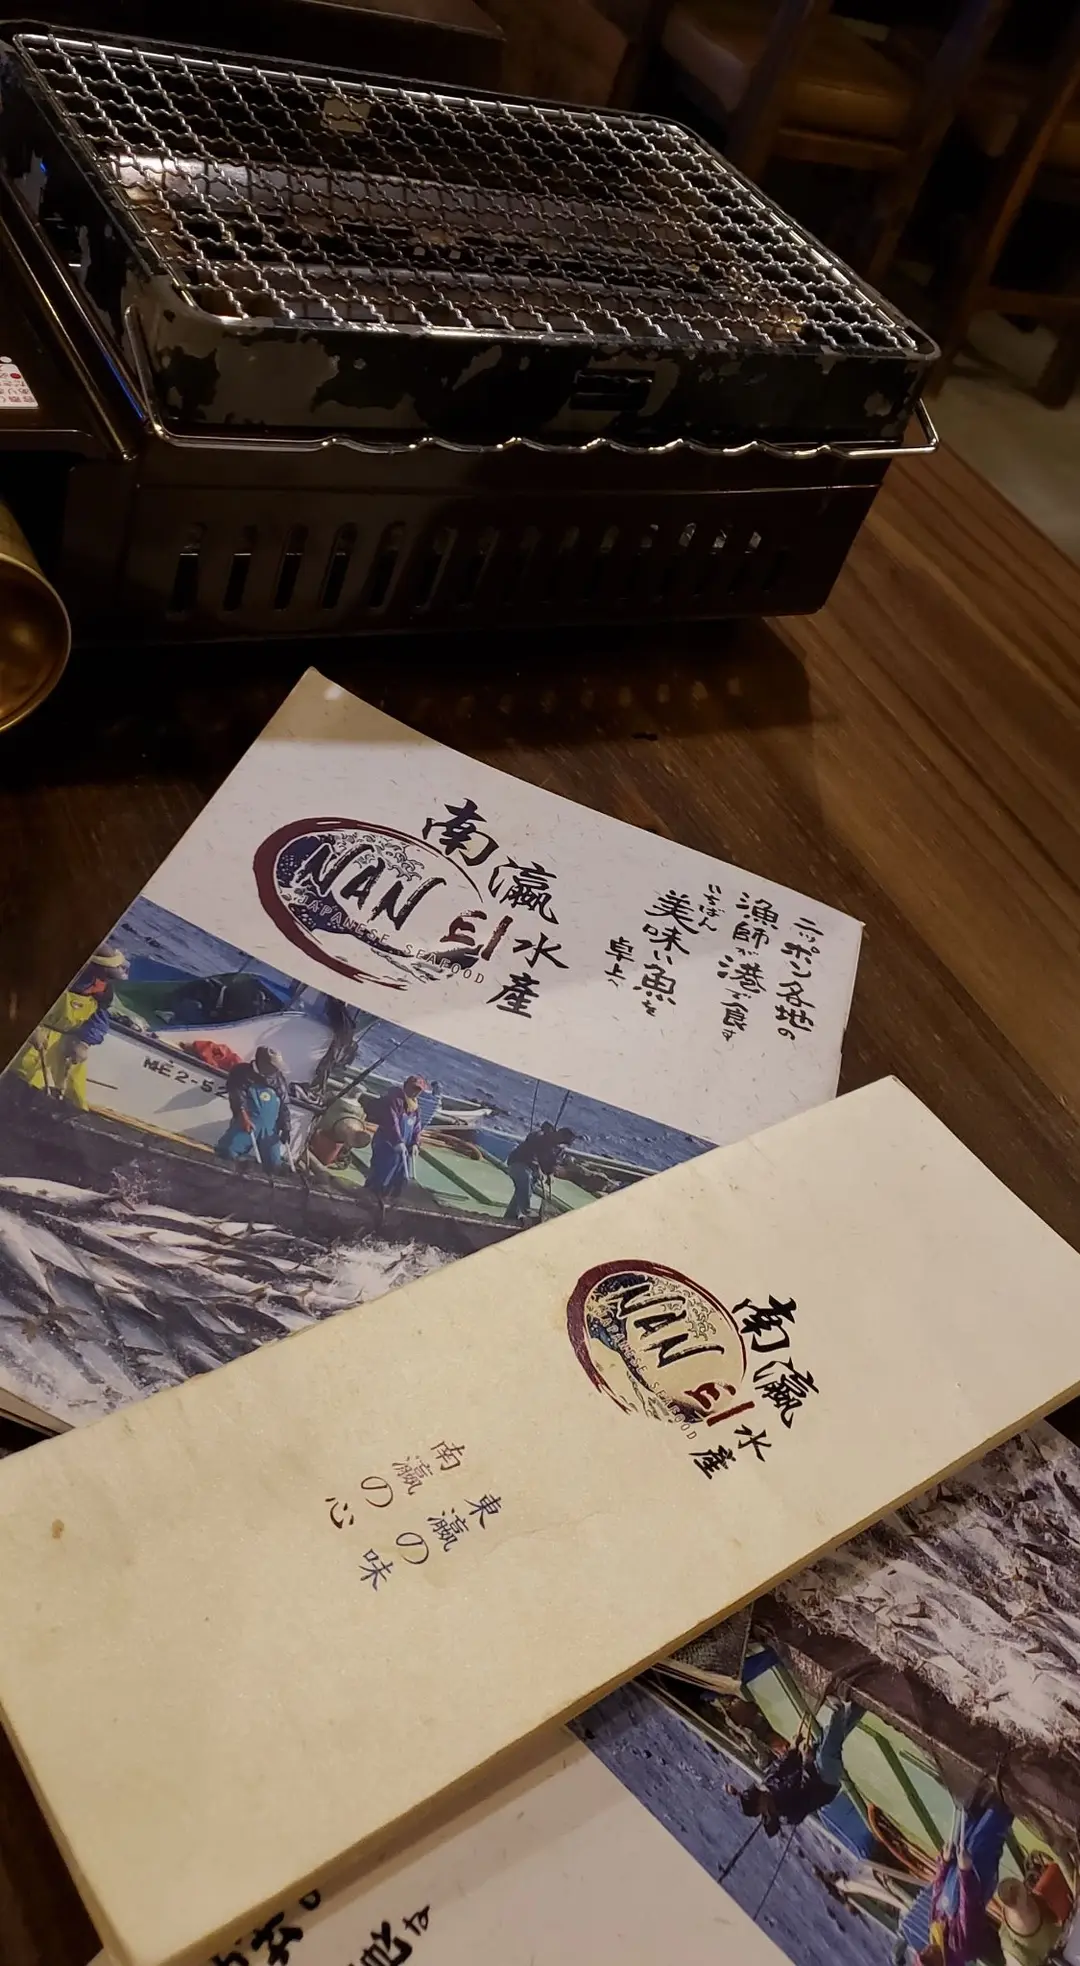 南瀛水産
NAN 日l
JAPANESE SEAFOOD
ニッポン各地の
漁師が港で食す
いちばん
美味い魚を
卓上へ
ME2-5
南瀛水産
NAN 日l
JAPANESE SEAFOOD
東瀛の味
南瀛の心